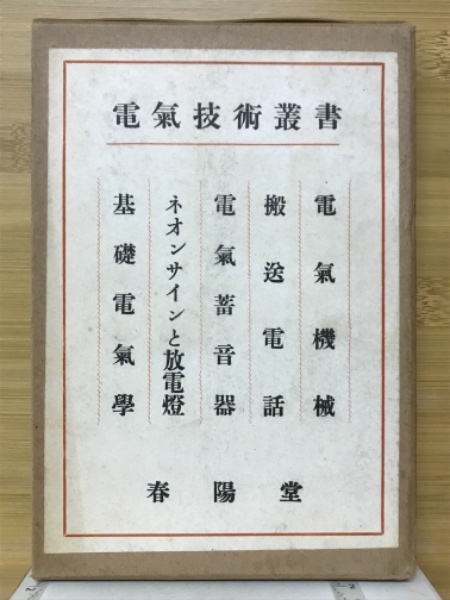 電氣技術叢書
電氣機械
搬送電話
電氣蓄音器
ネオンサインと放電燈
基礎電氣學
春陽堂